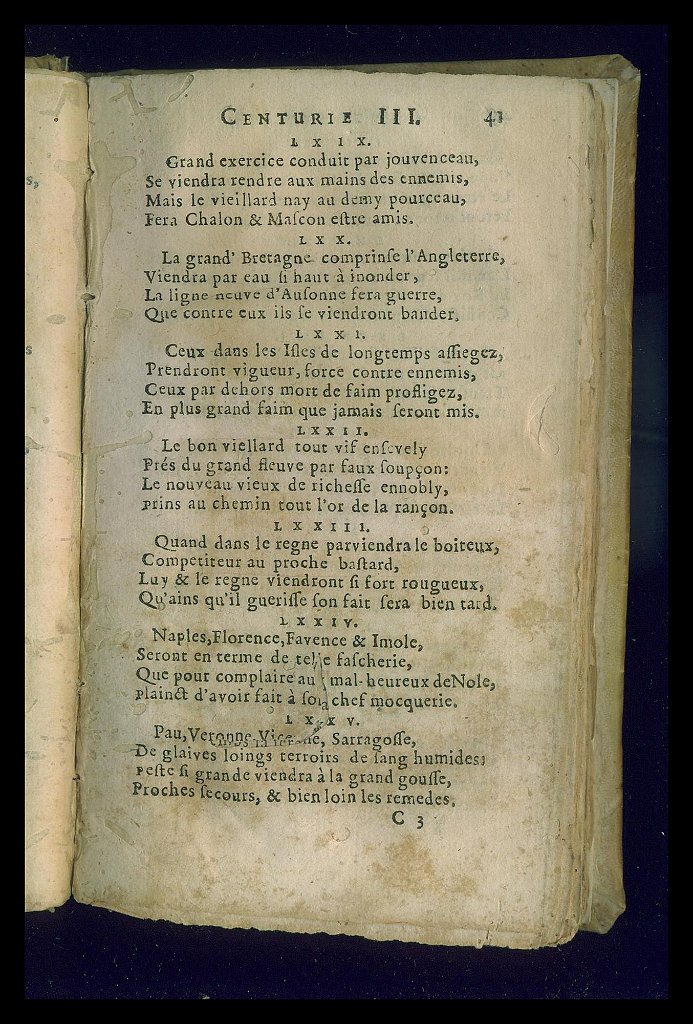 CENTURIE III. 41
LXIX.
Grand exercice conduit par jouvenceau,
Se viendra rendre aux mains des ennemis,
Mais le vieillard nay au demy pourceau,
Fera Chalon & Maſcon eſtre amis.
LXX.
La grand' Bretagne comprinſe l'Angleterre,
Viendra par eau ſi haut à inonder,
La ligne neuve d'Auſonne fera guerre,
Que contre eux ils ſe viendront bander.
LXXI.
Ceux dans les Iſles de longtemps aſſiegez,
Prendront vigueur, force contre ennemis,
Ceux par dehors mort de faim profligez,
En plus grand faim que jamais ſeront mis.
LXXII.
Le bon viellard tout vif enſevely
Prés du grand fleuve par faux ſoupçon:
Le nouveau vieux de richeſſe ennobly,
prins au chemin tout l'or de la rançon.
LXXIII.
Quand dans le regne parviendra le boiteux,
Competiteur au proche baſtard,
Luy & le regne viendront ſi fort rougueux,
Qu'ains qu'il gueriſſe ſon fait ſera bien tard.
LXXIV.
Naples, Florence, Favence & Imole,
Seront en terme de telle faſcherie,
Que pour complaire au mal-heureux de Nole,
plainct d'avoir fait à ſon chef mocquerie.
LXXV.
Pau, Veronne, Sarragoſſe,
De glaives loings terroirs de ſang humides:
peſte ſi grande viendra à la grand gouſſe,
Proches ſecours, & bien loin les remedes.
C 3